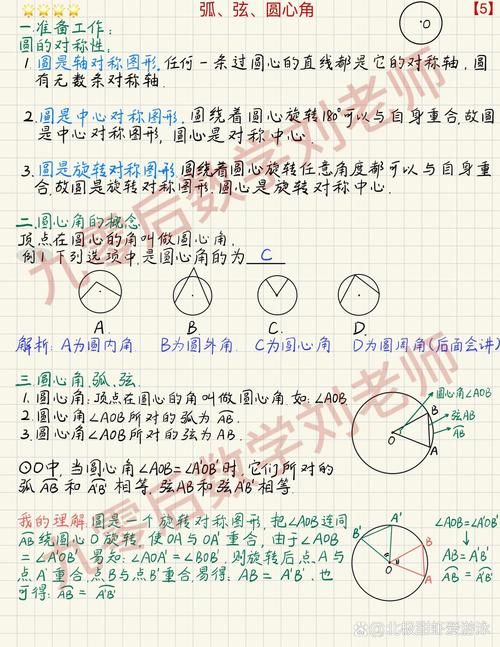 弧、弦、圆心角
【5】
一.准备工作:
圆的对称性:
1.圆是轴对称图形.任何一条过圆心的直线都是它的对称轴,圆
有无数条对称轴.
2.圆是中心对称图形.圆绕着圆心旋转180°可以与自身重合,故圆
是中心对称图形,圆心是对称中心.
3.圆是旋转对称图形.圆绕着圆心旋转任意角度都可以与自身重
合,故圆是旋转对称图形.圆心是旋转对称中心.
二.圆心角的概念
顶点在圆心的角叫做圆心角.
例1.下列选项中,是圆心角的为 C
A. B. C. D.
解析:A为圆内角 B为圆外角. C为圆心角 D为圆周角(后面会讲)
三.圆心角.弧.弦.
1.圆心角:顶点在圆心的角叫做圆心角.如:∠AOB
2.圆心角∠AOB所对的弧为 A͡B.
3.圆心角∠AOB所对的弦为AB.
圆心角∠AOB
弦AB
A͡B
O
B
A
⊙O中,当圆心角∠AOB=∠A'OB'时,它们所对的
弧A͡B 和 A͡'B' 相等,弦AB和弦A'B'相等.
我的理解:圆是一个旋转对称图形,把∠AOB连同
A͡B绕圆心O旋转,使OA与OA'重合,由于∠AOB
=∠A'OB'.易知:∠AOA'=∠BOB',则旋转后点A与
点A'重合,点B与点B'重合,易得:AB=A'B'.也
可得:A͡B=A͡'B'
B'
A'
B
A
O
∠AOB=∠A'OB'
↓
AB=A'B'
A͡B=A͡'B'
九零后数学刘老师
九零后数学刘老师
知乎 @北极甜虾爱游泳